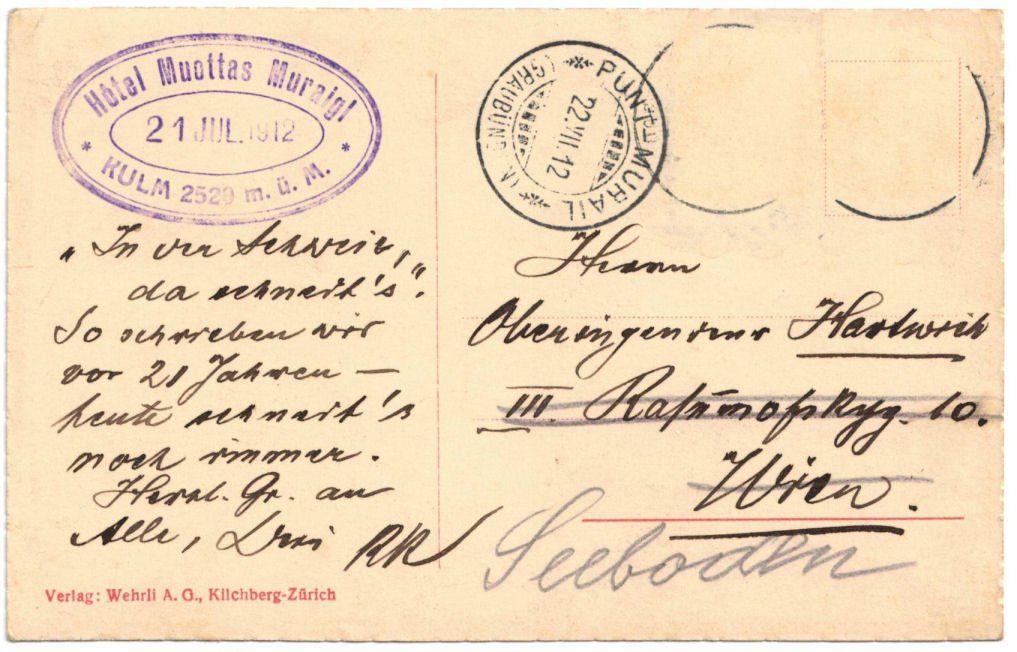 Hôtel Muottas Muraigl
21 JUL. 1912
* KULM 2520 m. ü. M. *
PUNT MURAIL
22.VII.12
(GRAUBÜND
„In der Schweiz,
da schneit's“.
So schrieben wir
vor 21 Jahren —
heute schneit's
noch immer.
Herzl. Gr. an
Alle, Dein RR
Herrn
Oberingenieur Hartwich
III. Rasumofskyg. 10.
Wien.
Seeboden
Verlag: Wehrli A. G., Kilchberg-Zürich